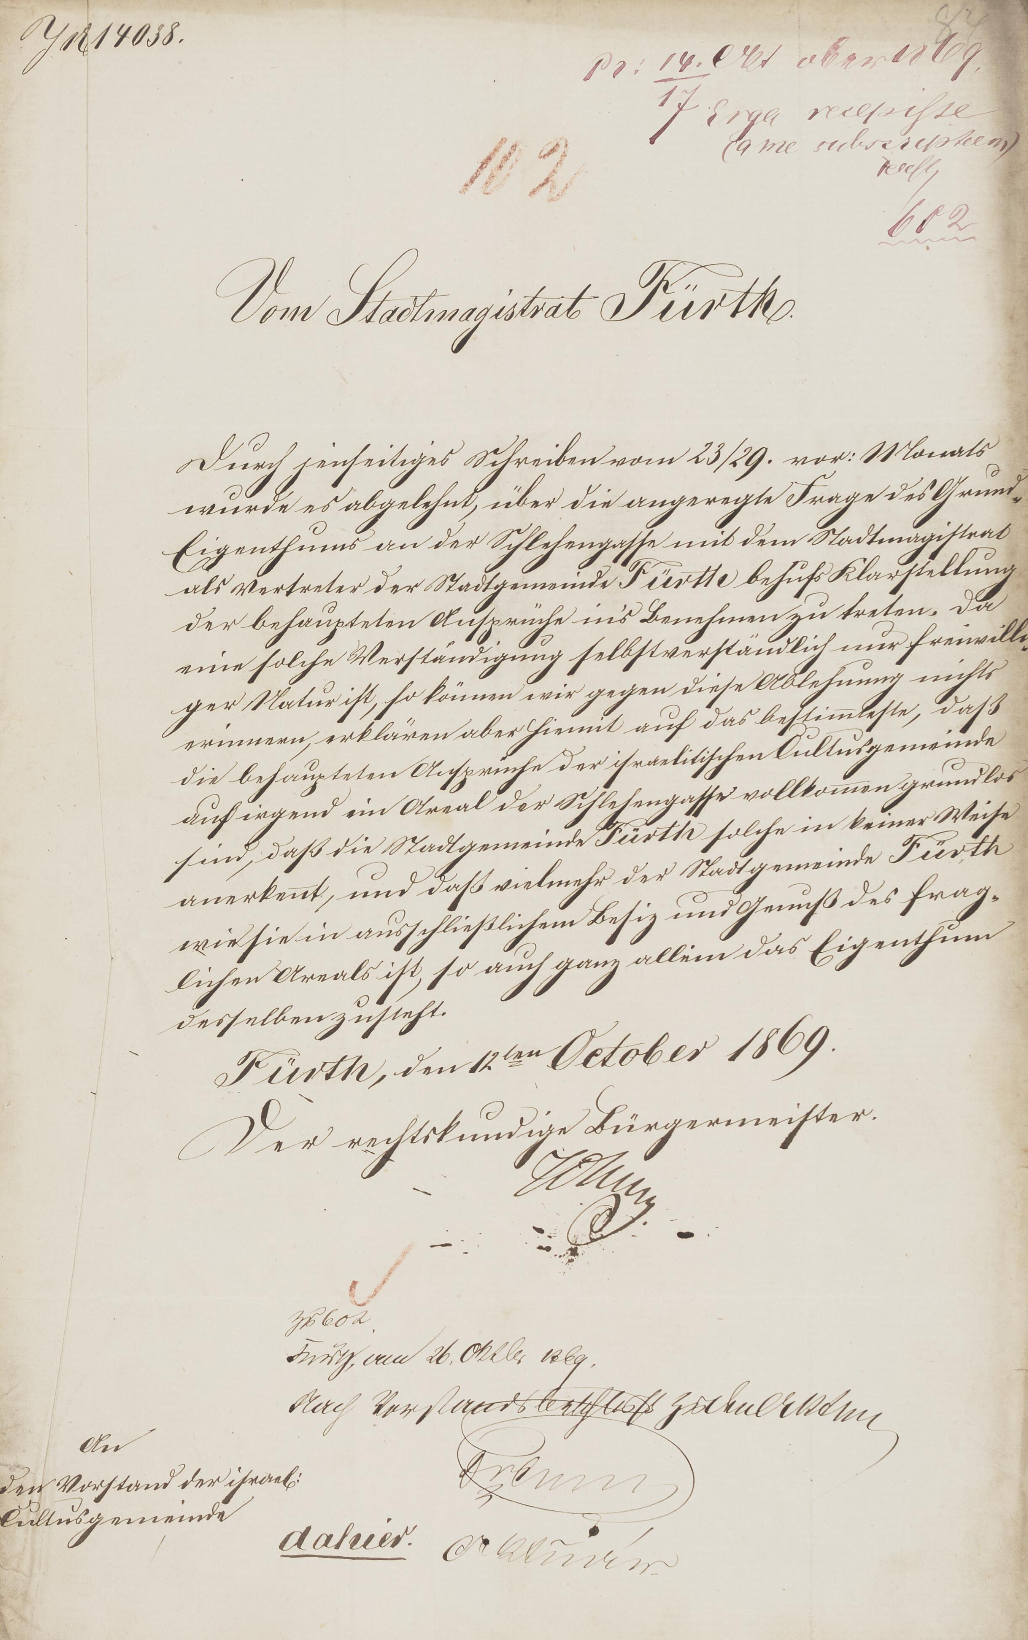 14038.
84
pr: 14. Okt ober 1869.
17 Erga recepisse
(a me subscriptum)
602
102
Vom Stadtmagistrat Fürth.
Durch jenseitiges Schreiben vom 23/29. vor: Monats
wurde es abgelehnt, über die angeregte Frage des Grund-
Eigenthums an der Schlehengasse mit dem Stadtmagistrat
als Vertreter der Stadtgemeinde Fürth behufs Klarstellung
der behaupteten Ansprüche in's Benehmen zu treten. Da
eine solche Verständigung selbstverständlich nur freiwilli-
ger Natur ist, so können wir gegen diese Ablehnung nichts
erinnern, erklären aber hiemit auf das bestimmteste, daß
die behaupteten Ansprüche der israelitischen Cultusgemeinde
auf irgend ein Areal der Schlehengasse vollkommen grundlos
sind, daß die Stadtgemeinde Fürth solche in keiner Weise
anerkennt, und daß vielmehr der Stadtgemeinde Fürth
wie sie in ausschließlichem Besiz und Genuß des frag-
lichen Areals ist, so auch ganz allein das Eigenthum
desselben zusteht.
Fürth, den 12ten October 1869.
Der rechtskundige Bürgermeister.
602
Fürth, am 26. Oktbr 1869.
Nach Vorstandsbeschluß zu den Akten
An
den Vorstand der israel:
Cultusgemeinde
dahier.